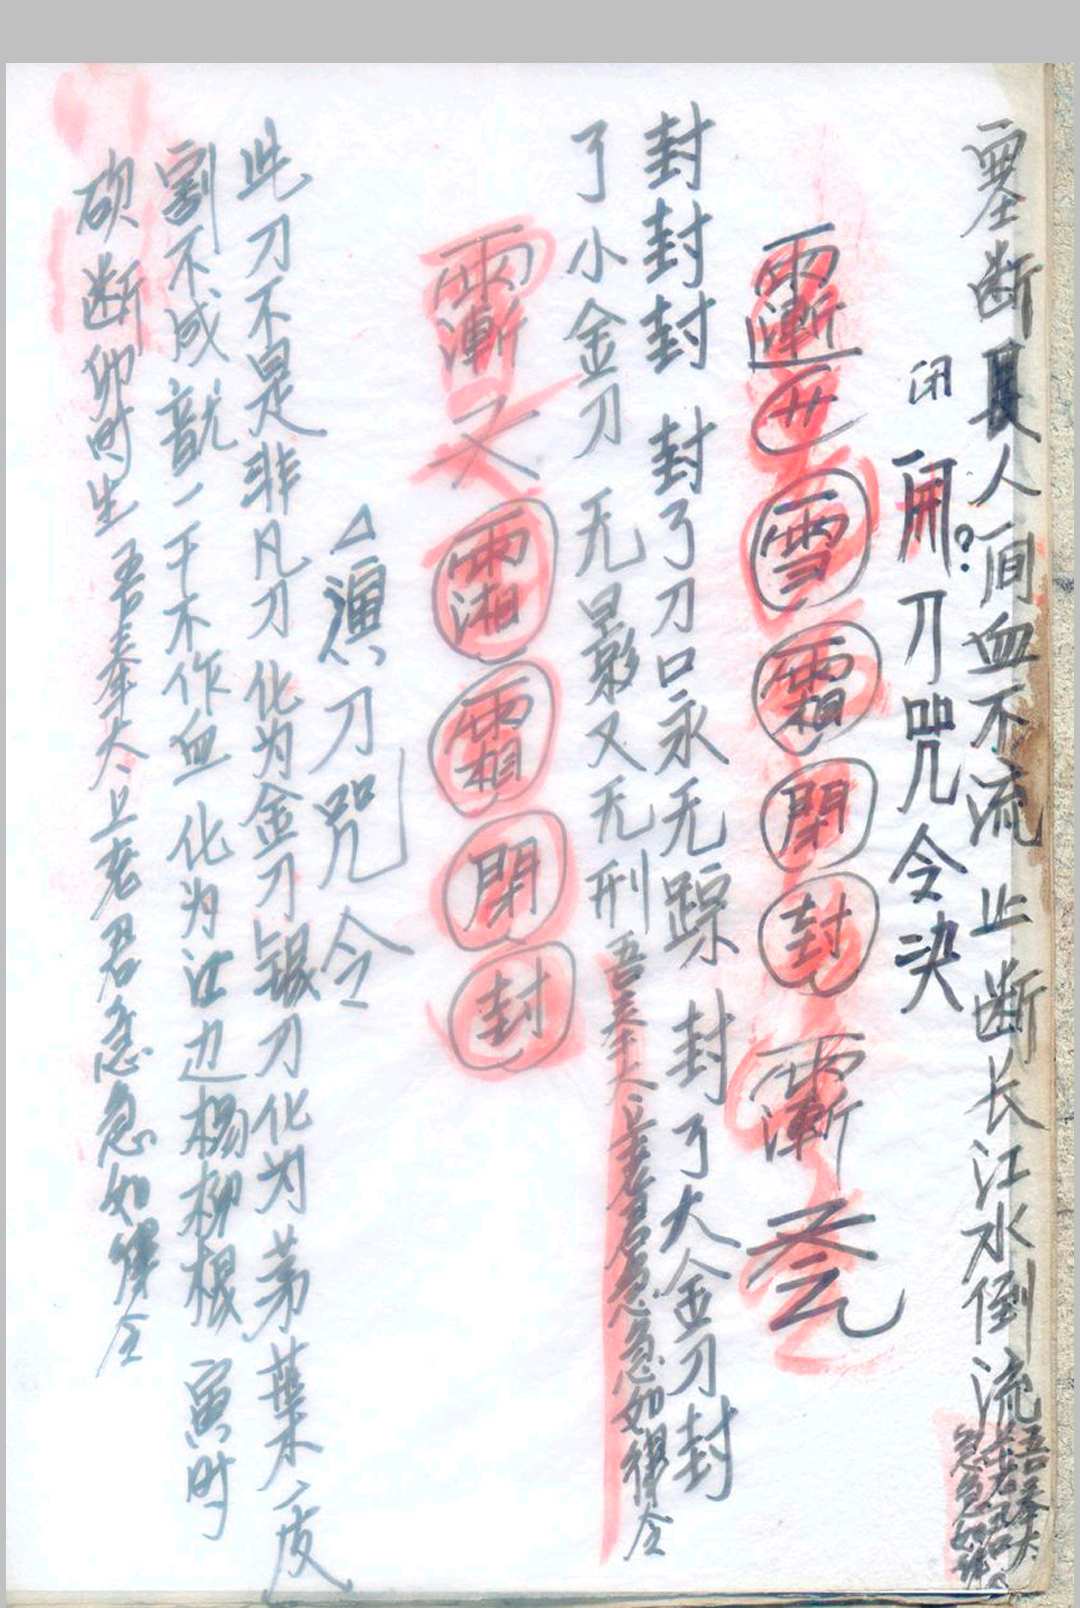 断長人间血不流 止断长江水倒流 吾奉太上老君 急急如律令
闭
闹?刀咒令决
雪霜閉封
封封封 封了刀口永无踪 封了大金刀封
了小金刀 无影又无刑 吾奉太上老君急急如律令
霜閉封
刀咒令
此刀不是非凡刀 化为金刀银刀化为茅葉不皮
割不成 一千不作血 化为江边杨柳根 寅时
砍断卯时生 吾奉太上老君急急如律令